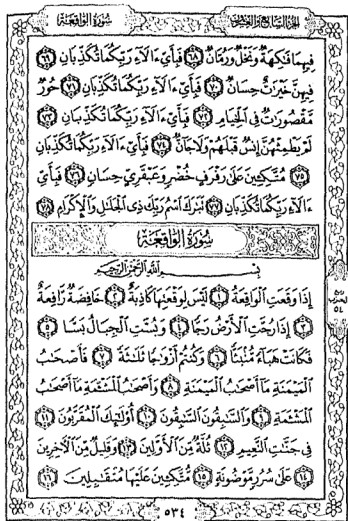 سُورَةُ الوَاقِعَةِ
الجزء السابع والعشرون
فِيهِمَا فَٰكِهَةٌ وَنَخْلٌ وَرُمَّانٌ ٦٨ فَبِأَيِّ ءَالَآءِ رَبِّكُمَا تُكَذِّبَانِ ٦٩
فِيهِنَّ خَيْرَٰتٌ حِسَانٌ ٧٠ فَبِأَيِّ ءَالَآءِ رَبِّكُمَا تُكَذِّبَانِ ٧١ حُورٌ
مَّقْصُورَٰتٌ فِي الْخِيَامِ ٧٢ فَبِأَيِّ ءَالَآءِ رَبِّكُمَا تُكَذِّبَانِ ٧٣
لَمْ يَطْمِثْهُنَّ إِنسٌ قَبْلَهُمْ وَلَا جَآنٌّ ٧٤ فَبِأَيِّ ءَالَآءِ رَبِّكُمَا تُكَذِّبَانِ
٧٥ مُتَّكِـِٔينَ عَلَىٰ رَفْرَفٍ خُضْرٍ وَعَبْقَرِيٍّ حِسَانٍ ٧٦ فَبِأَيِّ
ءَالَآءِ رَبِّكُمَا تُكَذِّبَانِ ٧٧ تَبَٰرَكَ اسْمُ رَبِّكَ ذِي الْجَلَٰلِ وَالْإِكْرَامِ ٧٨
سُورَةُ الوَاقِعَةِ
بِسْمِ اللَّهِ الرَّحْمَٰنِ الرَّحِيمِ
إِذَا وَقَعَتِ الْوَاقِعَةُ ١ لَيْسَ لِوَقْعَتِهَا كَاذِبَةٌ ٢ خَافِضَةٌ رَّافِعَةٌ
٣ إِذَا رُجَّتِ الْأَرْضُ رَجًّا ٤ وَبُسَّتِ الْجِبَالُ بَسًّا ٥
فَكَانَتْ هَبَآءً مُّنۢبَثًّا ٦ وَكُنتُمْ أَزْوَٰجًا ثَلَٰثَةً ٧ فَأَصْحَٰبُ
الْمَيْمَنَةِ مَآ أَصْحَٰبُ الْمَيْمَنَةِ ٨ وَأَصْحَٰبُ الْمَشْـَٔمَةِ مَآ أَصْحَٰبُ
الْمَشْـَٔمَةِ ٩ وَالسَّٰبِقُونَ السَّٰبِقُونَ ١٠ أُو۟لَٰٓئِكَ الْمُقَرَّبُونَ ١١
فِي جَنَّٰتِ النَّعِيمِ ١٢ ثُلَّةٌ مِّنَ الْأَوَّلِينَ ١٣ وَقَلِيلٌ مِّنَ الْأٓخِرِينَ
١٤ عَلَىٰ سُرُرٍ مَّوْضُونَةٍ ١٥ مُّتَّكِـِٔينَ عَلَيْهَا مُتَقَٰبِلِينَ ١٦
ربع
الحزب
٥٤
٥٣٤